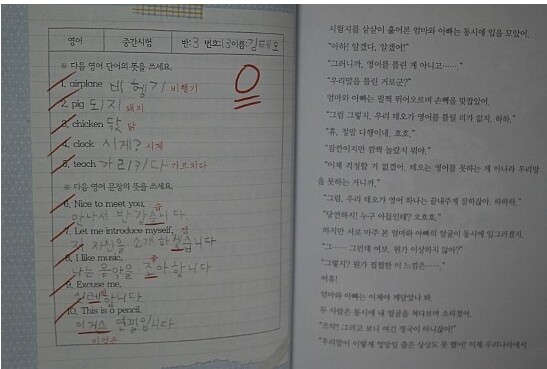 영어 중간시험 반:3 번호:13 이름:김테오
※ 다음 영어 단어의 뜻을 쓰세요.
1. airplane 비헹기 비행기
2. pig 되지 돼지
3. chicken 닥 닭
4. clock 시게? 시계
5. teach 가리키다 가르치다
※ 다음 영어 문장의 뜻을 쓰세요.
6. Nice to meet you.
만나서 반갑습니다
7. Let me introduce myself.
자신을 소개하겠습니다
8. I like music.
나는 음악을 합니다
9. Excuse me.
실례합니다.
10. This is a pencil.
이거스 연필입니다
이것은
시험지를 살살이 훑어본 엄마와 아빠는 동시에 입을 모았어.
“아하! 알겠다, 알겠어!”
“그러니까, 영어를 틀린 게 아니고…….”
“우리말을 틀린 거로군?”
엄마와 아빠는 펄쩍 뛰어오르며 손뼉을 맞잡았어.
“그럼 그렇지, 우리 테오가 영어를 틀릴 리가 없지, 하하.”
“휴, 정말 다행이네, 호호.”
“잠깐이지만 깜짝 놀랐지 뭐야.”
“이제 걱정할 거 없겠어. 테오는 영어를 못하는 게 아니라 우리말
을 못하는 거니까.”
“그럼, 우리 테오가 영어 하나는 끝내주게 잘하잖아, 하하하.”
“당연하지! 누구 아들인데? 오호호.”
하지만 서로 마주 본 엄마와 아빠의 얼굴이 동시에 일그러졌지.
“그…… 그런데 여보, 뭔가 이상하지 않아?”
“그렇지? 뭔가 찜찜한 이 느낌은…….”
어휴!
엄마와 아빠는 이제야 깨달았나 봐.
두 사람은 동시에 내 얼굴을 쳐다보며 소리쳤어.
“으악! 그러고 보니 여긴 영국이 아니잖아!”
“우리말이 이렇게 엉망일 줄은 상상도 못 했어! 이제 우리나라에서